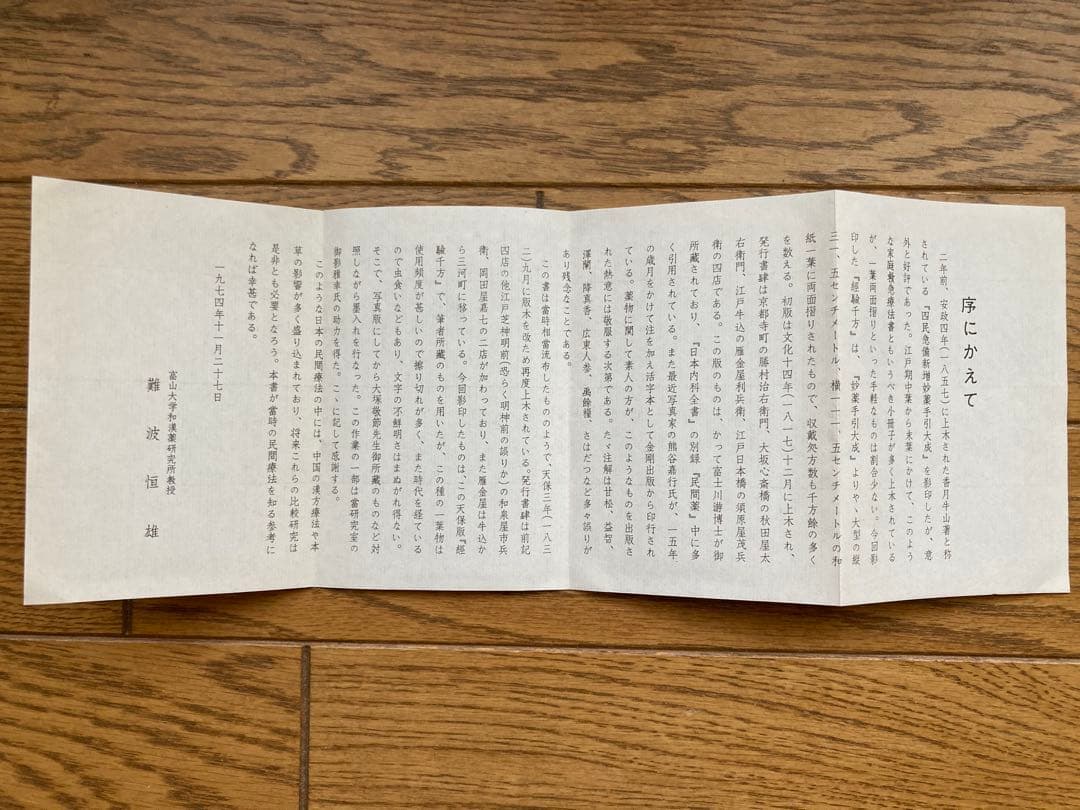 序にかえて
二年前、安政四年(一八五七)に上木された香月牛山著と称
されている『四民急備新増妙薬手引大成』を影印したが、意
外と好評であった。江戸期中葉から末葉にかけて、このよう
な家庭救急療法書ともいうべき小冊子が多く上木されている
が、一葉両面摺りといった手軽なものは割合少ない。今回影
印した『経験千方』は、『妙薬手引大成』よりやゝ大型の縦
三一、五センチメートル、横一一一、五センチメートルの和
紙一葉に両面摺りされたもので、収載処方数も千方餘の多く
を数える。初版は文化十四年(一八一七)十二月に上木され、
発行書肆は京都寺町の勝村治右衛門、大坂心斎橋の秋田屋太
右衛門、江戸牛込の雁金屋利兵衛、江戸日本橋の須原屋茂兵
衛の四店である。この版のものは、かって富士川游博士が御
所藏されており、『日本内科全書』の別録『民間薬』中に多
く引用されている。また最近写真家の熊谷嘉行氏が、一五年
の歳月をかけて注を加え活字本として金剛出版から印行され
ている。薬物に関して素人の方が、このようなものを出版さ
れた熱意には敬服する次第である。たゞ注解は甘松、益智、
澤蘭、降真香、広東人参、禹餘糧、さはだつなど多々誤りが
あり残念なことである。
この書は當時相當流布したもののようで、天保三年(一八三
二)九月に版木を改ため再度上木されている。発行書肆は前記
四店の他江戸芝神明前(恐らく明神前の誤りか)の和泉屋市兵
衛、岡田屋嘉七の二店が加わっており、また雁金屋は牛込か
ら三河町に移っている。今回影印したものは、この天保版『經
驗千方』で、筆者所藏のものを用いたが、この種の一葉物は
使用頻度が甚しいので擦り切れが多く、また時代を経ている
ので虫食いなどもあり、文字の不鮮明さはまぬがれ得ない。
そこで、写真版にしてから大塚敬節先生御所藏のものなど対
照しながら墨入れを行なった。この作業の一部は當研究室の
御影雅幸氏の助力を得た。こゝに記して感謝する。
このような日本の民間療法の中には、中国の漢方療法や本
草の影響が多く盛り込まれており、将来これらの比較研究は
是非とも必要となろう。本書が當時の民間療法を知る参考に
なれば幸甚である。
一九七四年十一月二十七日
富山大学和漢薬研究所教授
難波恒雄